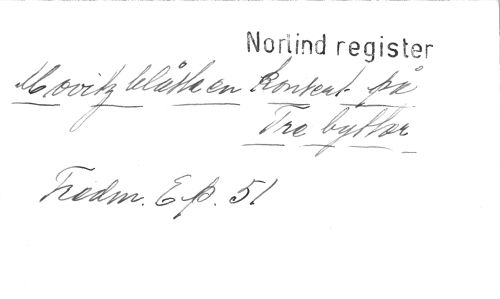 Norlind register
Movitz blåste en konsert på
Tre byttor
Fredm. Ep. 51